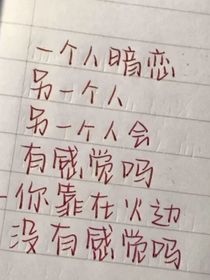 一个人暗恋
另一个人
另一个人会
有感觉吗
-你靠在火边
没有感觉吗